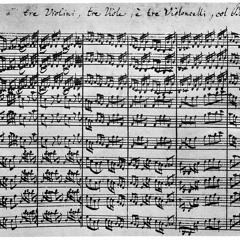 à tre Violini, tre Viole, è tre Violoncelli, col